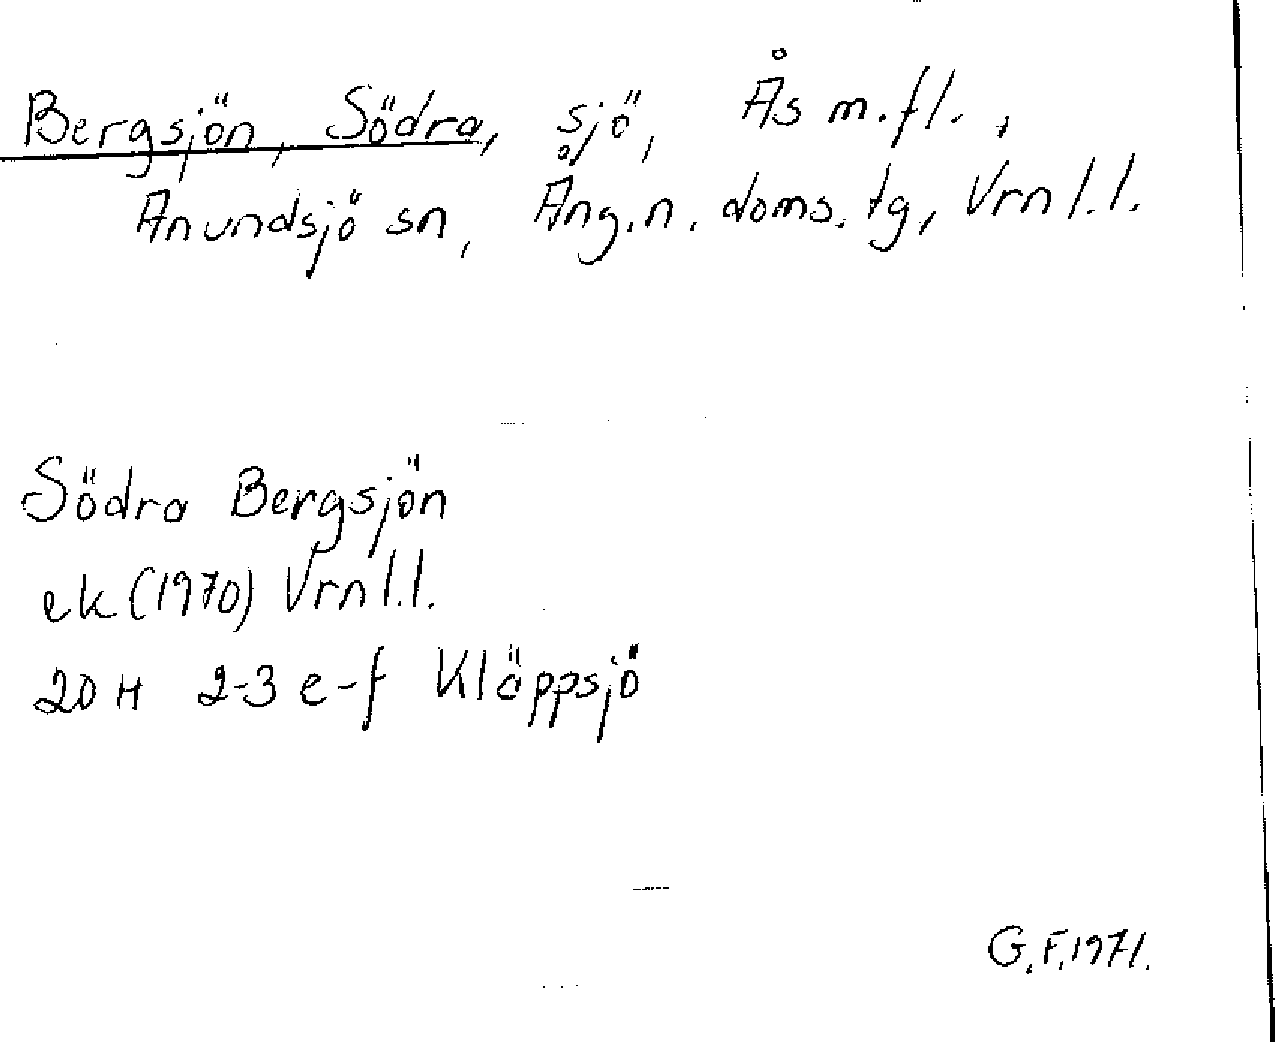 Bergsjön, Södra, sjö, Ås m.fl.,
Anundsjö sn, Ång.n. doms. tg, Vrn l.l.
Södra Bergsjön
ek (1970) Vrn l.l.
20 H 2-3 e-f Kläppsjö
G.F. 1971.